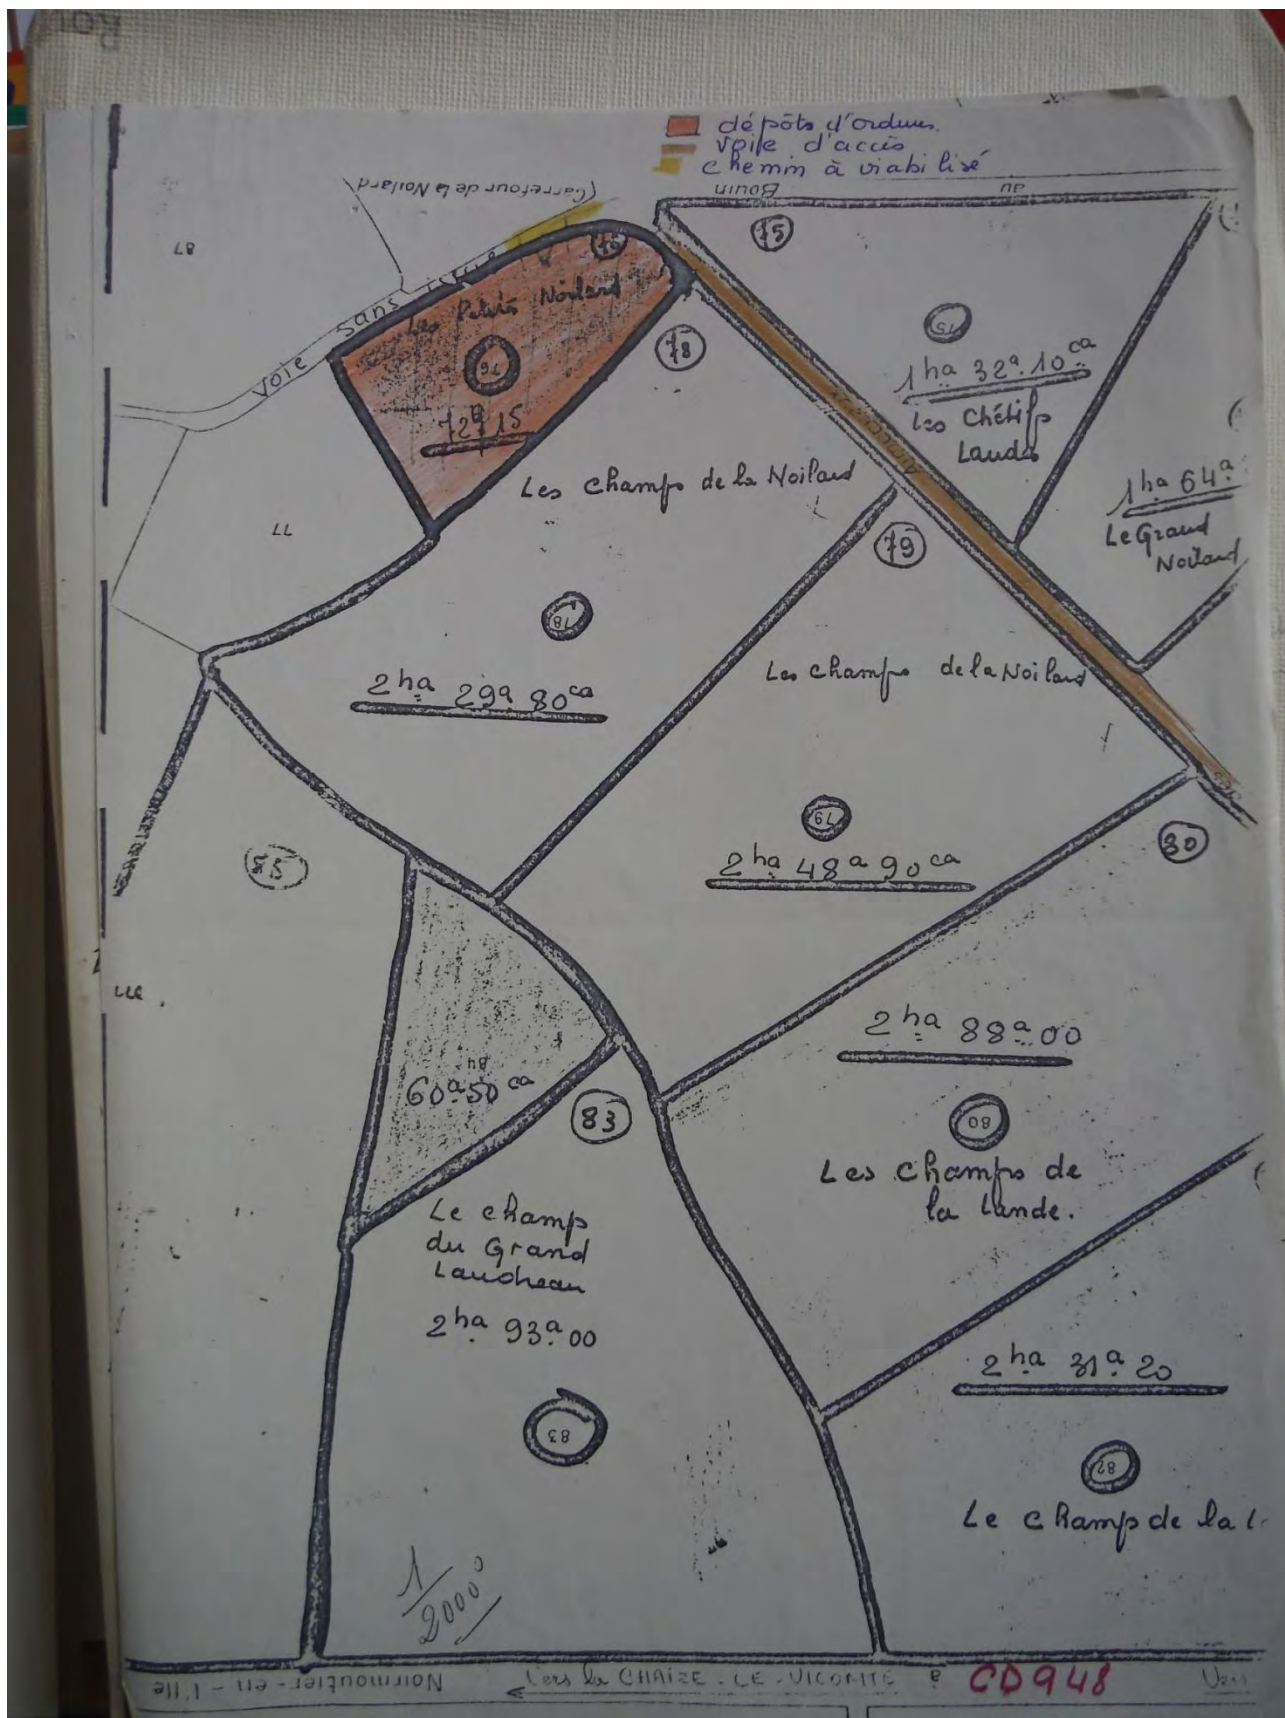 dépôts d'ordures.
voie d'accès
chemin à viabilisé
(Carrefour de la Noilard
Bouin
au
87
75
76
voie sans issue
Les Petits Noilard
76
72a 15
78
75
1 ha 32a 10 ca
Les Chétifs
Landes
1 ha 64a
Le Grand
Noilard
77
Les champs de la Noilard
79
78
2 ha 29a 80 ca
Les champs de la Noilard
79
2 ha 48a 90 ca
80
85
ue.
2 ha 88a 00
84
60a 50 ca
83
80
Les champs de
la Lande.
Le champ
du Grand
Laudreau
2 ha 93a 00
2 ha 31a 20
83
82
Le champ de la L
1/2000°
Noirmoutier-en-l'Ile
Vers la CHAIZE-LE-VICOMTE
à
CD948